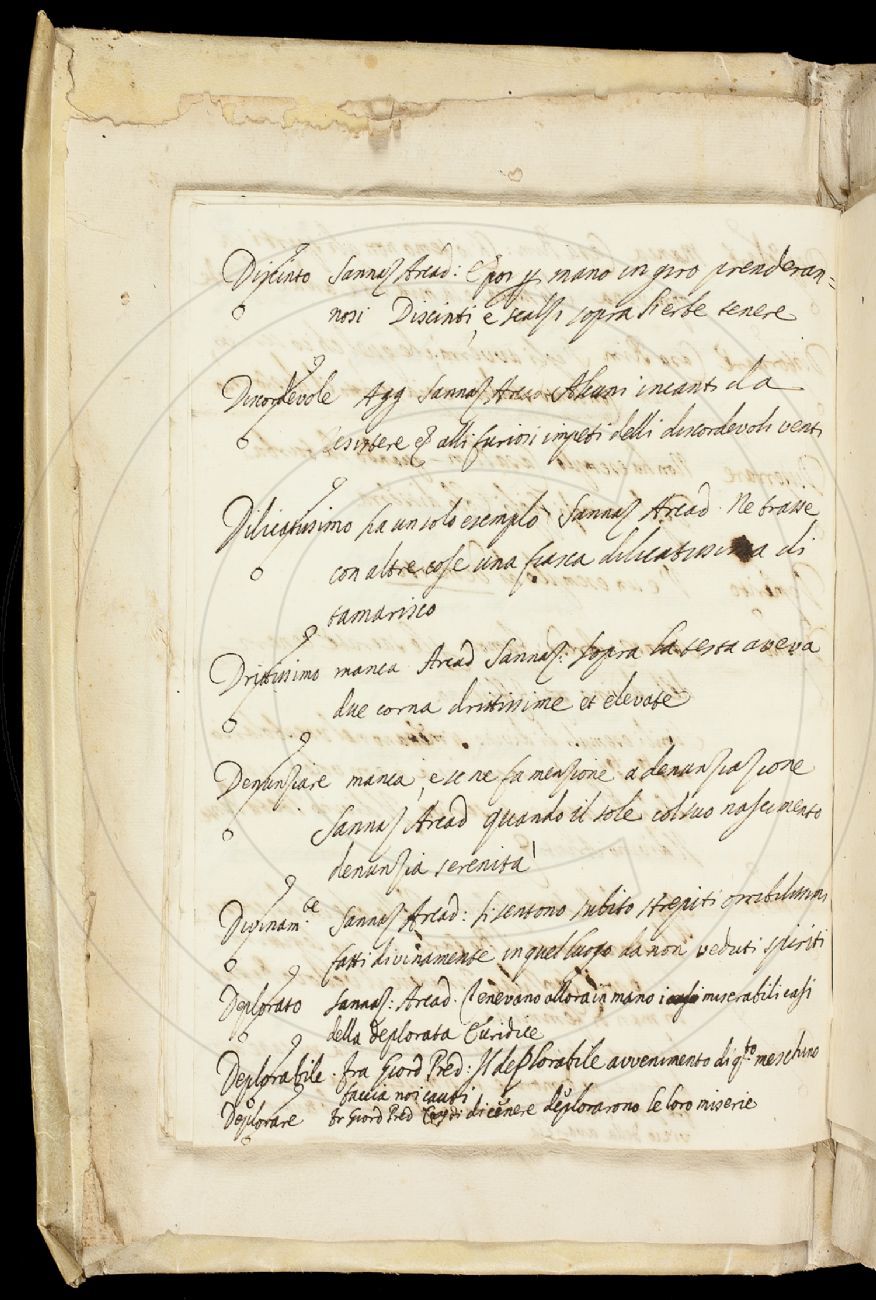 Discinto Sannaz Arcad: E poi p mano in giro prenderan=
nosi Discinti, e scalzi sopra l'erbe tenere
Discordevole Agg Sannaz Arcad Alcuni incanti da
resistere alli furiosi impeti delli discordevoli venti
Dilicatissimo ha un solo esemplo Sannaz Arcad. Ne trasse
con altre cose una fiasca dilicatissima di
tamarisco
Drittissimo manca Arcad Sannaz: sopra la testa aveva
due corna drittissime et elevate
Denunziare manca, e se ne fa menzione a denunziazione
Sannaz Arcad quando il sole col suo nascimento
denunzia serenità
Divinam.te Sannaz Arcad: si sentono subito strepiti orribilissimi
fatti divinamente in quel luogo da non veduti spiriti
Deplorato Sannaz: Arcad. tenevano allora in mano i miserabili casi
della deplorata Euridice
Deplorabile. fra Giord Pred: Il deplorabile avvenimento di q.to meschino
faccia noi cauti
Deplorare fr Giord Pred di cenere deplorarono le loro miserie